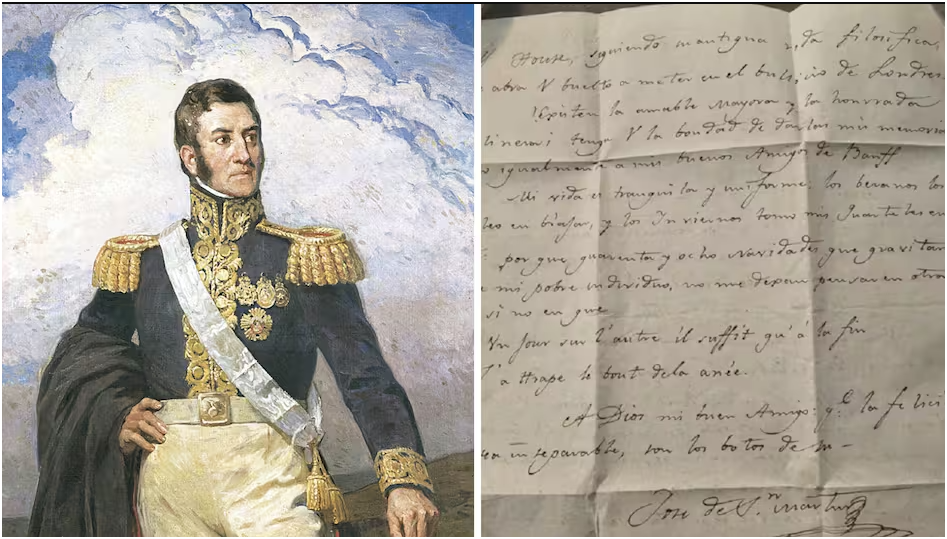 House, siguiendo mi antigua vida filosofica,
abra V buelto a meter en el bullicio de Londres
Existen la amable Mayora y la honrrada
tenga V la bondad de darlas mis memorias
igualmente a mis buenos Amigos de Banff
Mi vida es tranquila y uniforme. los beranos los
en y los Inviernos tomo mis Cuarteles en
por que quarenta y ocho Navidades que gravitan
mi pobre individuo, no me dexan pensar en otra
si no en que
Un Jour sur l'autre il suffit qu'à la fin
l'a ttrape le bout dela anée.
A Dios mi buen Amigo: q.e la felici
sea inseparable, son los botos de su
Jose de S.n Martin